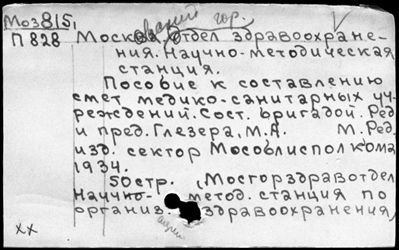 Моз815,
П828 Москва, отдел здравоохране-
ния. Научно-методическая
станция.
Пособие к составлению
смет медико-санитарных уч-
реждений. Сост. бригадой. Ред
и пред. Глезера, М.А. М. Ред.
изд. сектор Мособлисполкома
1934.
50стр., Мосгорздравотдел
Научно- метод. станция по
организ. здравоохранения,
xx